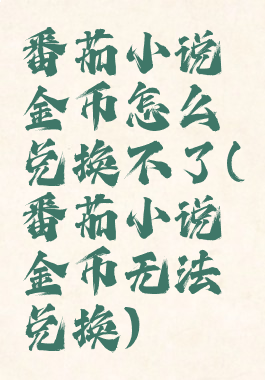 番茄小说
金币怎么
兑换不了(
番茄小说
金币无法
兑换)